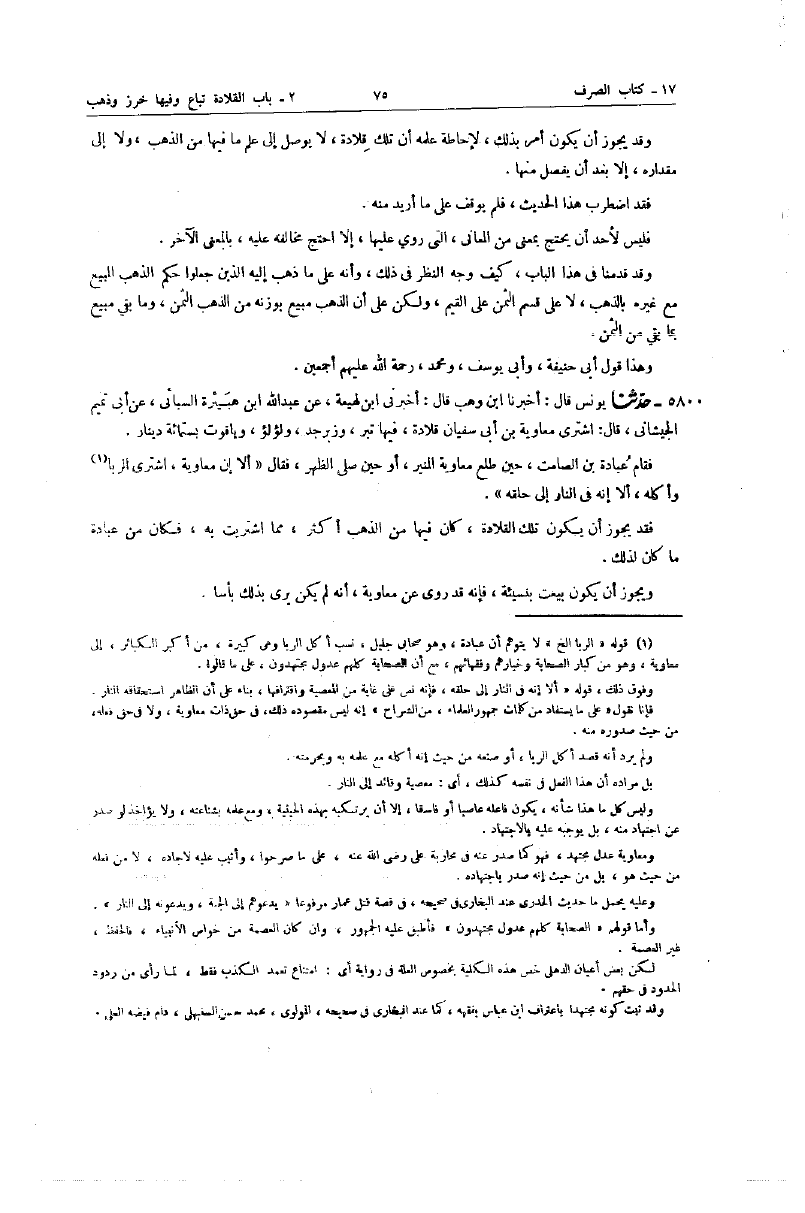 ١٧ - كتاب الصرف ٧٥ ٢ - باب القلادة تباع وفيها خرز وذهب
وقد يجوز أن يكون أمر بذلك ، لإحاطة علمه أن تلك قِلادة ، لا يوصل إلى علم ما فيها من الذهب ، ولا إلى
مقداره ، إلا بعد أن يفصل منها .
فقد اضطرب هذا الحديث ، فلم يوقف على ما أريد منه .
فليس لأحد أن يحتج بمعنى من المعانى ، التى روي عليها ، إلا احتج مخالفه عليه ، بالمعنى الآخر .
وقد قدمنا فى هذا الباب ، كيف وجه النظر فى ذلك ، وأنه على ما ذهب إليه الذين جعلوا حكم الذهب المبيع
مع غيره بالذهب ، لا على قسم الثمن على القيم ، ولكن على أن الذهب مبيع بوزنه من الذهب الثمن ، وما بقي مبيع
بما بقي من الثمن .
وهذا قول أبى حنيفة ، وأبى يوسف ، ومحمد ، رحمة الله عليهم أجمعين .
٥٨٠٠ - حدّثنا يونس قال : أخبرنا ابن وهب قال : أخبرنى ابن لهيعة ، عن عبدالله ابن هبَـيْرة السبائى ، عن أبى تميم
الجيشانى ، قال: اشترى معاوية بن أبى سفيان قلادة ، فيها تبر ، وزبرجد ، ولؤلؤ ، وياقوت بستمائة دينار .
فقام عُبادة بن الصامت ، حين طلع معاوية المنبر ، أو حين صلى الظهر ، فقال « ألا إن معاوية ، اشترى الربا(١)
وأكله ، ألا إنه فى النار إلى حلقه » .
فقد يجوز أن يكون تلك القلادة ، كان فيها من الذهب أكثر ، مما اشتريت به ، فكان من عبادة
ما كان لذلك .
ويجوز أن يكون بيعت بنسيئة ، فإنه قد روى عن معاوية ، أنه لم يكن يرى بذلك بأسا .
(١) قوله « الربا الخ » لا يتوهم أن عبادة ، وهو صحابى جليل ، نسب أكل الربا وهى كبيرة ، من أكبر الكبائر ، إلى
معاوية ، وهو من كبار الصحابة وخيارهم وفقهائهم ، مع أن الصحابة كلهم عدول مجتهدون ، على ما قالوا .
وفوق ذلك ، قوله « ألا إنه فى النار إلى حلقه ، فإنه نص على غاية من المعصية واقترافها ، بناء على أن الظاهر استحقاقه النار .
فإنا نقول « على ما يستفاد من كلمات جمهور العلماء ، من الشراح » إنه ليس مقصوده ذلك، فى حق ذات معاوية ، ولا فى حق فعله،
من حيث صدوره منه .
ولم يرد أنه قصد أكل الربا ، أو صنعه من حيث إنه أكله مع علمه به وبحرمته .
بل مراده أن هذا الفعل فى نفسه كذلك ، أى : معصية وقائد إلى النار .
وليس كل ما هذا شأنه ، يكون فاعله عاصيا أو فاسقا ، إلا أن يرتكبه بهذه الحيثية ، ومع علمه بشناعته ، ولا يؤاخذ لو صدر
عن اجتهاد منه ، بل يوجبه عليه بالاجتهاد .
ومعاوية عدل مجتهد ، فهو كما صدر عنه فى محاربة على رضى الله عنه ، على ما صرحوا ، وأثيب عليه لاجاده ، لا من فعله
من حيث هو ، بل من حيث إنه صدر باجتهاده .
وعليه يحمل ما حديث الخدرى عند البخارى فى صحيحه ، فى قصة قتل عمار مرفوعا « يدعوهم إلى الجنة ، ويدعونه إلى النار » .
وأما قولهم « الصحابة كلهم عدول مجتهدون » فأطبق عليه الجمهور ، وان كان العصمة من خواص الأنبياء ، فالحفظ ،
غير العصمة .
لكن بعض أعيان الدهلى خص هذه الكلية بخصوص العلة فى رواية أى : امتناع تعمد الكذب فقط ، لما رأى من ردود
الحدود فى حقهم .
وقد ثبت كونه مجتهدا باعتراف ابن عباس بفقهه ، كما عند البخارى فى صحيحه ، المولوى ، محمد حسن السنبهلى ، دام فيضه العلى .